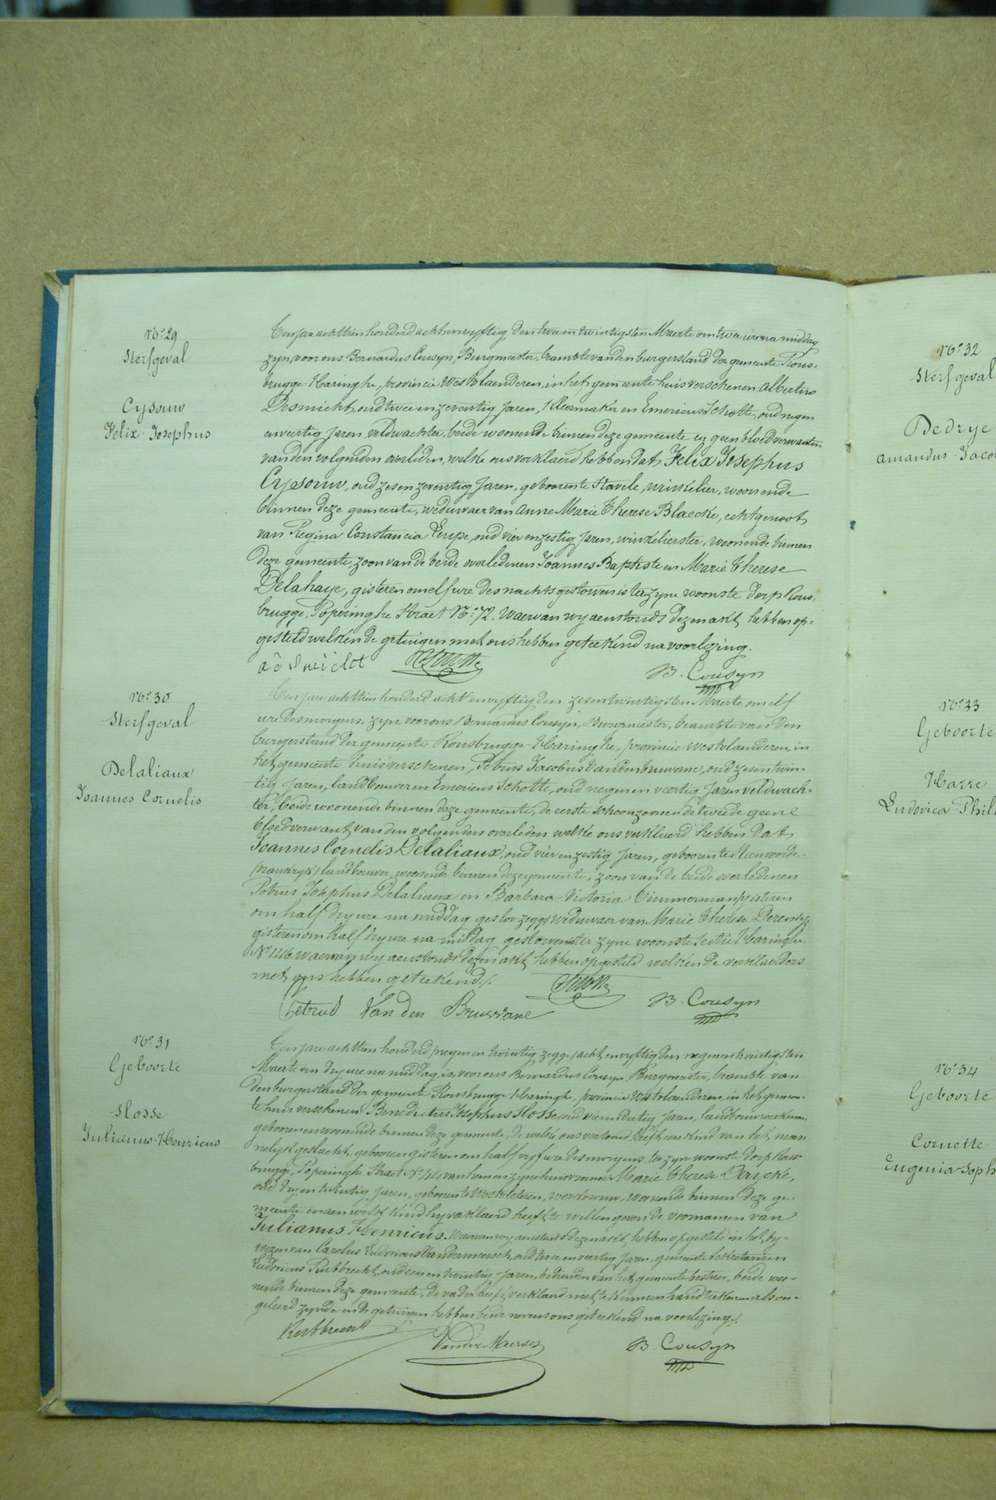 No. 29
Sterfgeval
Cysouw
Felix Josephus
Een jare achttien honderd achtenvyftig den twee en twintigsten Maerte om twee uren na middag
zyn voor ons Bernardus Cousyn, Burgmeester, beambte van den burgerstand der gemeente Rous-
brugge-Haringhe, provincie Westvlaenderen, in het gemeentehuis verschenen Albertus
Desmicht, oud twee en zeventig jaren, kleermaker en Emericus Schotte, oud negen
en veertig jaren veldwachter, beide woonende binnen deze gemeente en geen bloedverwanten
van den volgenden overleden, welke ons verklaerd hebben dat Felix Josephus
Cysouw, oud zes en zeventig jaren, geboren te Stavele, winkelier, woonende
binnen deze gemeente, weduwaer van Anne Marie Therese Blaecke, echtgenoot
van Regina Constancia oud vier en zestig jaren, winkelierster, woonende binnen
deze gemeente, zoon van de beide overledenen Joannes Baptiste en Marie Therese
Delahaye, gisteren om elf ure des nachts gestorven is te zyne woonste dorp Rous-
brugge, Poperinghe Straet No. 72. Waervan wy aenstonds dezen akt hebben op-
gesteld welken de getuigen met ons hebben geteekend na voorlezing.
B. Cousyn
No. 30
Sterfgeval
Delaliaux
Joannes Cornelis
Een jare achttien honderd achtenvyftig den zes en twintigsten Maerte om elf
ure des morgens, zyn voor ons Bernardus Cousyn, Burgmeester, beambte van den
burgerstand der gemeente Rousbrugge-Haringhe, provincie Westvlaenderen, in
het gemeentehuis verschenen, Petrus Jacobus Vandenbruwane, oud zes en twin-
tig jaren, landbouwer en Emericus Schotte, oud negen en veertig jaren veldwach-
ter, beide woonende binnen deze gemeente, de eerste schoonzoon en de tweede geene
bloedverwant van den volgenden overleden welke ons verklaerd hebben dat
Joannes Cornelis Delaliaux, oud vier en zestig jaren, geboren te
landbouwer, woonende binnen deze gemeente, zoon van de beide overledenen
Petrus Josephus Delaliaux en Barbara Victoria
om half dry ure na middag weduwaer van Marie Therese
gisteren om half dry ure na middag gestorven is te zyne woonste Haringhe
No. 146 waervan wy aenstonds dezen akt hebben opgesteld welken de verklaerders
met ons hebben geteekend.
Petrus Van den Bruwane B. Cousyn
No. 31
Geboorte
Slosse
Julianus-Henricus
Een jare achttien honderd negen en twintig zegge achtenvyftig den negen en twintigsten
Maerte om dry ure na middag, is voor ons Bernardus Cousyn, Burgmeester, beambte van
den burgerstand der gemeente Rousbrugge-Haringhe, provincie Westvlaenderen, in het gemeen-
tehuis verschenen Benedictus Josephus Slosse oud dertig jaren, landbouwwerkman,
geboren en woonende binnen deze gemeente, de welke ons vertoond heeft een kind van het man-
nelyk geslacht, geboren gisteren om half vyf ure des morgens te zyn woonste dorp Rous-
brugge, Poperinghe Straet No. van hem en zyne huisvrouwe Marie Therese
oud dry en twintig jaren, geboren te Westvleteren, woonende binnen deze ge-
meente en aen welk kind hy verklaerd heeft te willen geven de voornamen van
Julianus Henricus. Waervan wy aenstonds dezen akt hebben opgesteld in het by-
wezen van Carolus Ludovicus Vandermeersch, oud twee en veertig jaren, gemeente secretaris en
Ludovicus Ruebbrecht, oud een en twintig jaren, bediende van het gemeentebestuer, beide woo-
nende binnen deze gemeente, de vader heeft verklaerd niet te kunnen handteekenen als on-
geleerd zynde en de getuigen hebben benevens ons geteekend na voorlezing.
Vander Meersch
B. Cousyn
No. 32
Sterfgeval
Dedrye
Amandus Jaco
No. 33
Geboorte
Harre
Ludovica Phil
No. 34
Geboorte
Cornette
Eugenia-Soph